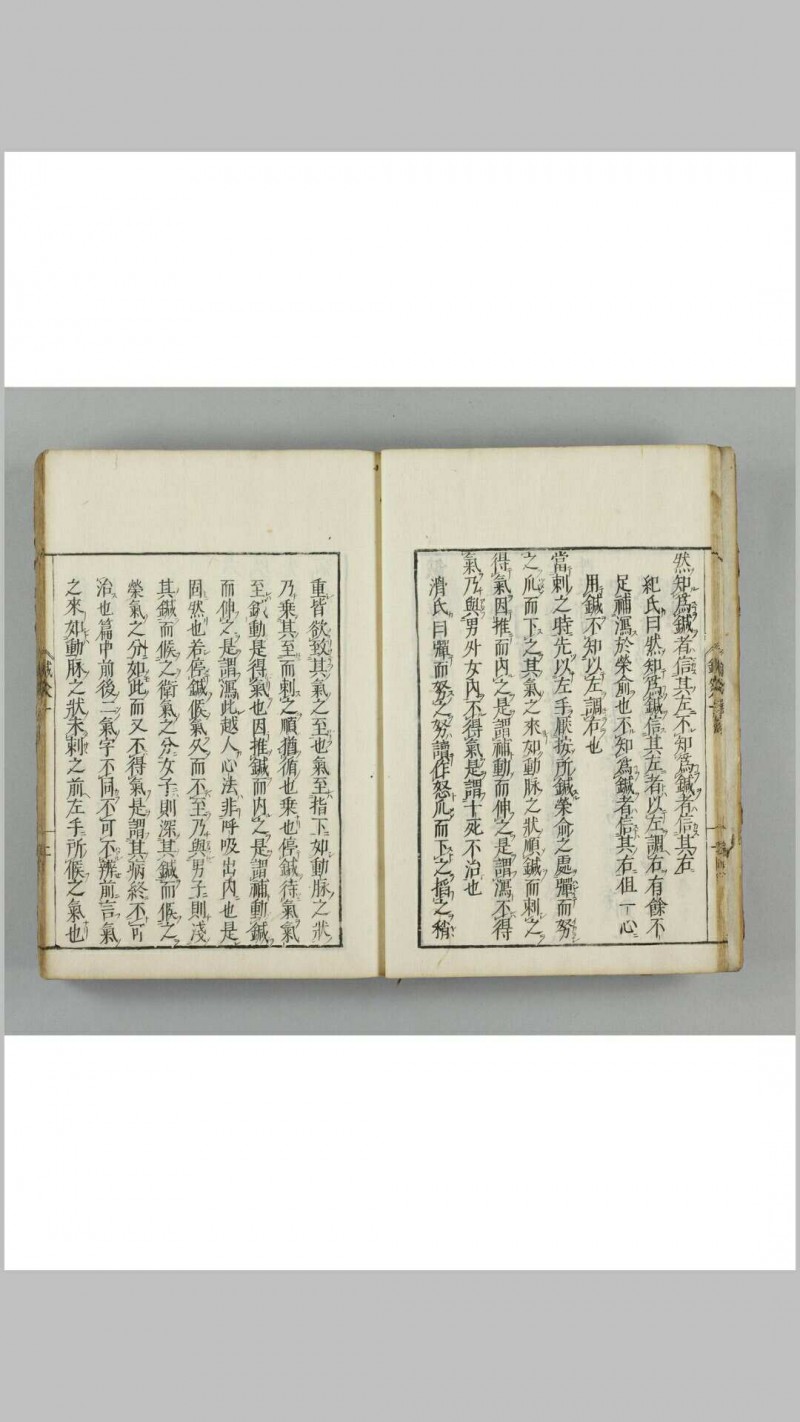 然知爲鍼者信其左不知爲鍼者信其右
紀氏曰然知爲鍼信其左者以左調右有餘不
足補瀉於榮俞也不知爲鍼者信其右但一心
用鍼不知以左調右也
當刺之時先以左手厭按所鍼榮俞之處彈而努
之爪而下之其氣之來如動脉之狀順鍼而刺之
得氣因推而内之是謂補動而伸之是謂瀉不得
氣乃與男外女内不得氣是謂十死不治也
滑氏曰彈而努之努讀作怒爪而下之掐之稍
重皆欲致其氣之至也氣至指下如動脉之狀
乃乘其至而刺之順猶循也乘也停鍼待氣氣
至鍼動是得氣也因推鍼而内之是謂補動鍼
而伸之是謂瀉此越人心法非呼吸出内也是
固然也若停鍼候氣久而不至乃與男子則淺
其鍼而候之衛氣之分女子則深其鍼而候之
榮氣之分如此而又不得氣是謂其病終不可
治也篇中前後二氣字不同不可不辨前言氣
之來如動脉之狀未刺之前左手所候之氣也